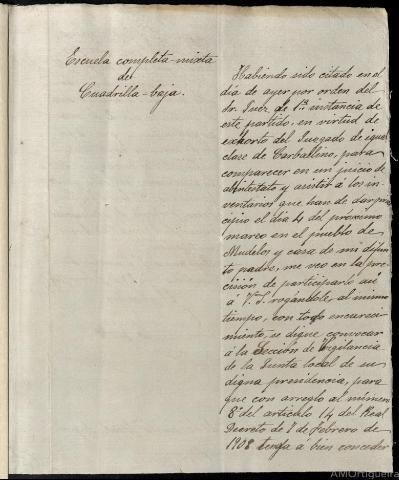 Escuela completa-mixta
de
Cuadrilla-baja.
Habiendo sido citado en el
día de ayer por orden del
Sr. Juez de 1ª instancia de
este partido, en virtud de
exhorto del Juzgado de igual
clase de Carballino, para
comparecer en un juicio de
abintestato y asistir á los in-
ventarios que han de dar prin
cipio el día 4 del próximo
marzo en el pueblo de
Mudelos y casa de mi difun
to padre, me veo en la pre
cisión de participarlo así
á V. S. rogándole, al mismo
tiempo, con todo encareci
miento, se digne convocar
á la Sección de Vigilancia
de la Junta local de su
digna presidencia, para
que con arreglo al número
8º del artículo 14 del Real
Decreto de 7 de febrero de
1908 tenga á bien conceder
AMOrtigueira